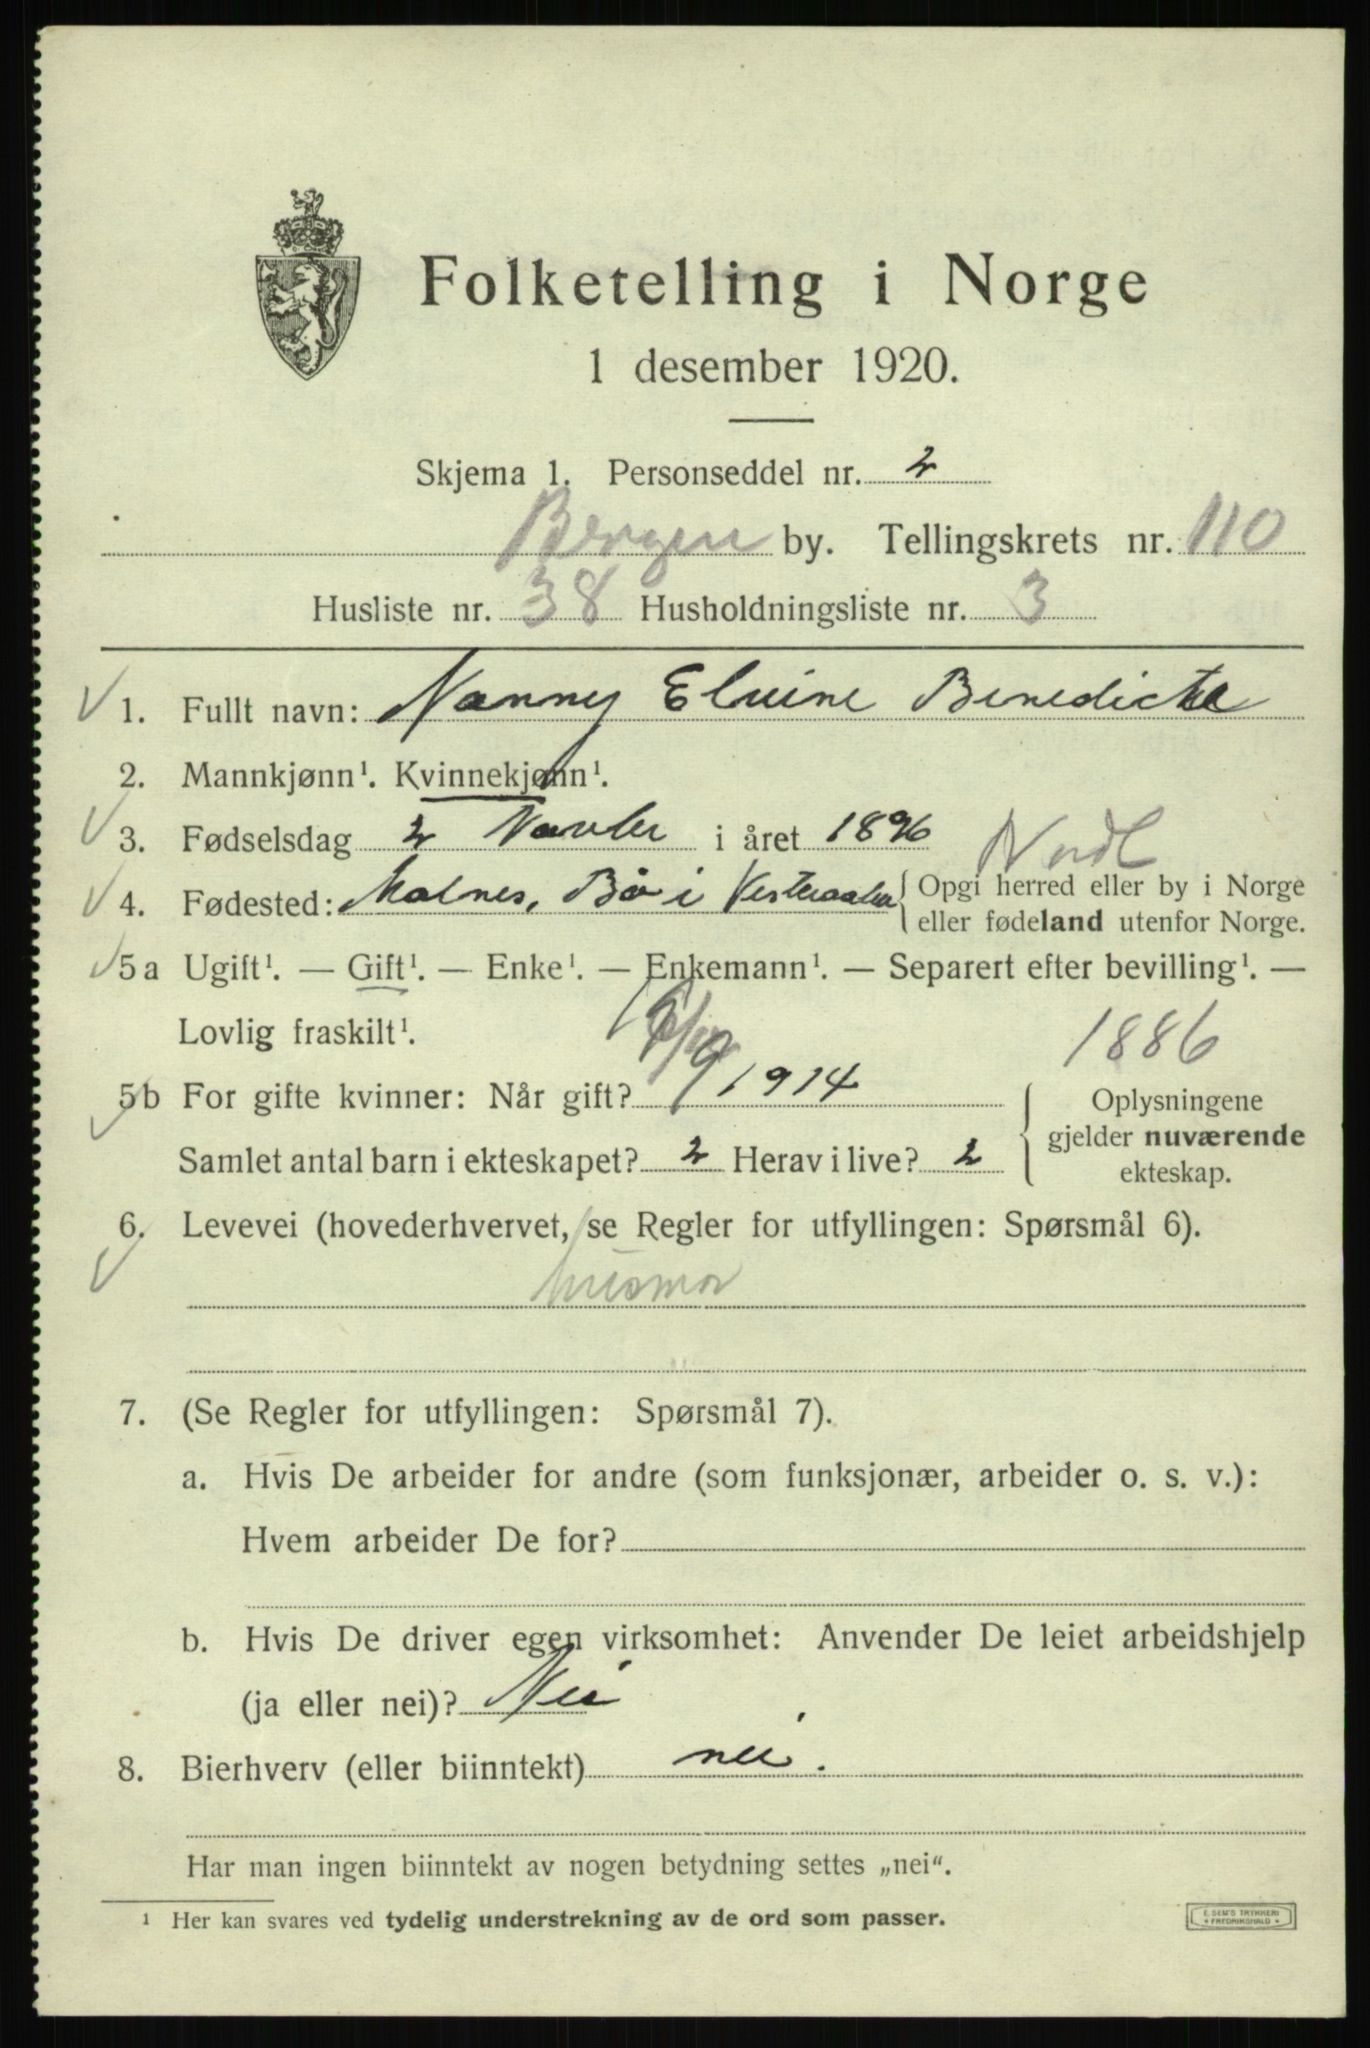 Folketelling i Norge
1 desember 1920.
Skjema 1. Personseddel nr. 2
Bergen by. Tellingskrets nr. 110
Husliste nr. 38 Husholdningsliste nr. 3
1. Fullt navn: Nanny Elvine Benedicte
2. Mannkjønn¹. Kvinnekjønn¹.
3. Fødselsdag 2 Novbr i året 1896
Nordl
4. Fødested: Malnes, Bø i Vesteraalen { Opgi herred eller by i Norge
eller fødeland utenfor Norge.
5a Ugift¹. — Gift¹. — Enke¹. — Enkemann¹. — Separert efter bevilling¹. —
Lovlig fraskilt¹.
1886
5b For gifte kvinner: Når gift? /9 1914
Samlet antal barn i ekteskapet? 2 Herav i live? 2
{ Oplysningene
gjelder nuværende
ekteskap.
6. Levevei (hovederhvervet, se Regler for utfyllingen: Spørsmål 6).
husmor
7. (Se Regler for utfyllingen: Spørsmål 7).
a. Hvis De arbeider for andre (som funksjonær, arbeider o. s. v.):
Hvem arbeider De for?
b. Hvis De driver egen virksomhet: Anvender De leiet arbeidshjelp
(ja eller nei)? Nei
8. Bierhverv (eller biinntekt) nei.
Har man ingen biinntekt av nogen betydning settes „nei“.
¹ Her kan svares ved tydelig understrekning av de ord som passer.
E. SEM'S TRYKKERI
FREDRIKSHALD